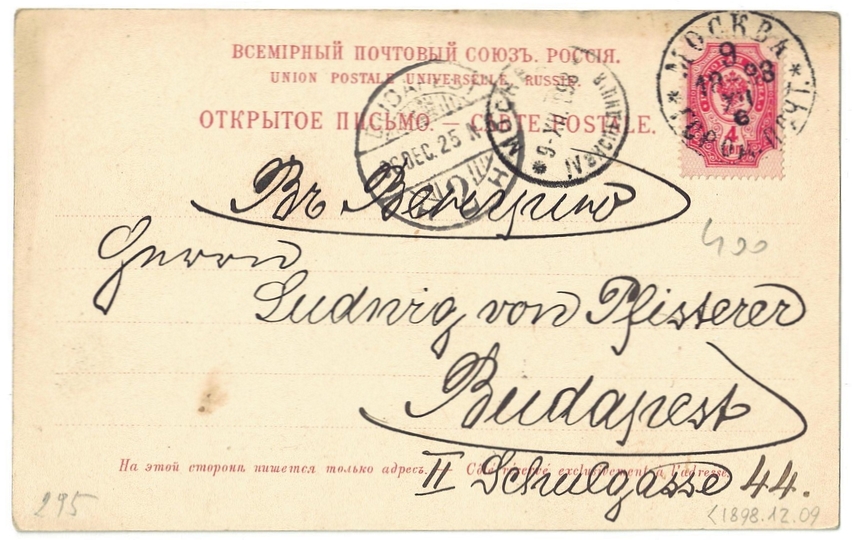 ВСЕМІРНЫЙ ПОЧТОВЫЙ СОЮЗЪ. РОССІЯ.
UNION POSTALE UNIVERSELLE. RUSSIE.
ОТКРЫТОЕ ПИСЬМО. — CARTE POSTALE.
МОСКВА
9
XII
4
6
BUDAPEST
DEC. 25
9-XII
Въ Венгрию
400
Herrn
Ludwig von Pfisterer
Budapest
На этой сторонѣ пишется только адресъ. — Côté réservé exclusivement à l'adresse.
II Schulgasse 44.
295
<1898.12.09